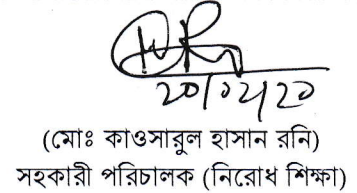 ২০/০২/২০
(মোঃ কাওসারুল হাসান রনি)
সহকারী পরিচালক (নিরোধ শিক্ষা)